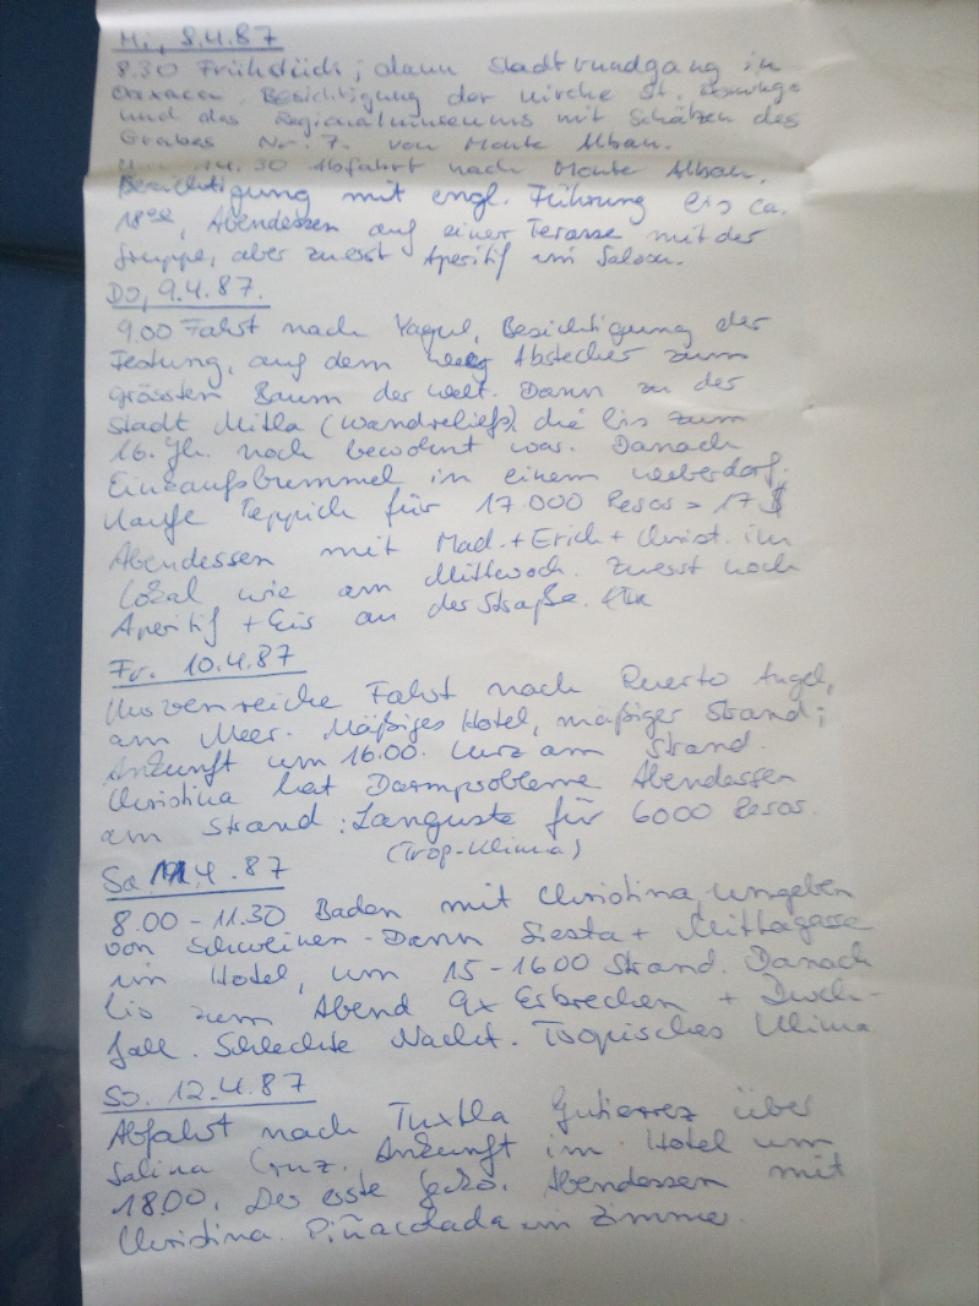 Mi, 8.4.87
8.30 Frühstück; dann Stadtrundgang in
Oaxaca. Besichtigung der Kirche St. Domingo
und das Regionalmuseums mit Schätzen des
Grabes Nr. 7. von Monte Alban.
Um 14.30 Abfahrt nach Monte Alban.
Besichtigung mit engl. Führung bis ca.
18°°, Abendessen auf einer Terasse mit der
Gruppe, aber zuerst Aperitif im Salon.
Do, 9.4.87.
9.00 Fahrt nach Yagul, Besichtigung der
Festung, auf dem Weg Abstecher zum
grössten Baum der Welt. Dann zu der
Stadt Mitla (Wandreliefs) die bis zum
16. Jh. noch bewohnt war. Danach
Einkaufsbummel in einem Weberdorf.
Kaufe Teppich für 17.000 Pesos = 17 $
Abendessen mit Mad. + Erich + Christ. im
Lokal wie am Mittwoch. Zuerst noch
Aperitif + Eis an der Straße.
Fr. 10.4.87
Kurvenreiche Fahrt nach Puerto Angel,
am Meer. Mäßiges Hotel, mäßiger Strand;
Ankunft um 16.00. Kurz am Strand.
Christina hat Darmprobleme Abendessen
am Strand: Languste für 6000 Pesos.
(Trop-Klima)
Sa 11.4.87
8.00-11.30 Baden mit Christina, umgeben
von Schweinen. Dann Siesta + Mittagesse
im Hotel, um 15-1600 Strand. Danach
bis zum Abend 9x Erbrechen + Durch-
fall. Schlechte Nacht. Tropisches Klima
So. 12.4.87
Abfahrt nach Tuxtla Gutierrez über
Salina Cruz. Ankunft im Hotel um
18.00. Der erste Gecko. Abendessen mit
Christina. Piñacolada im Zimmer.